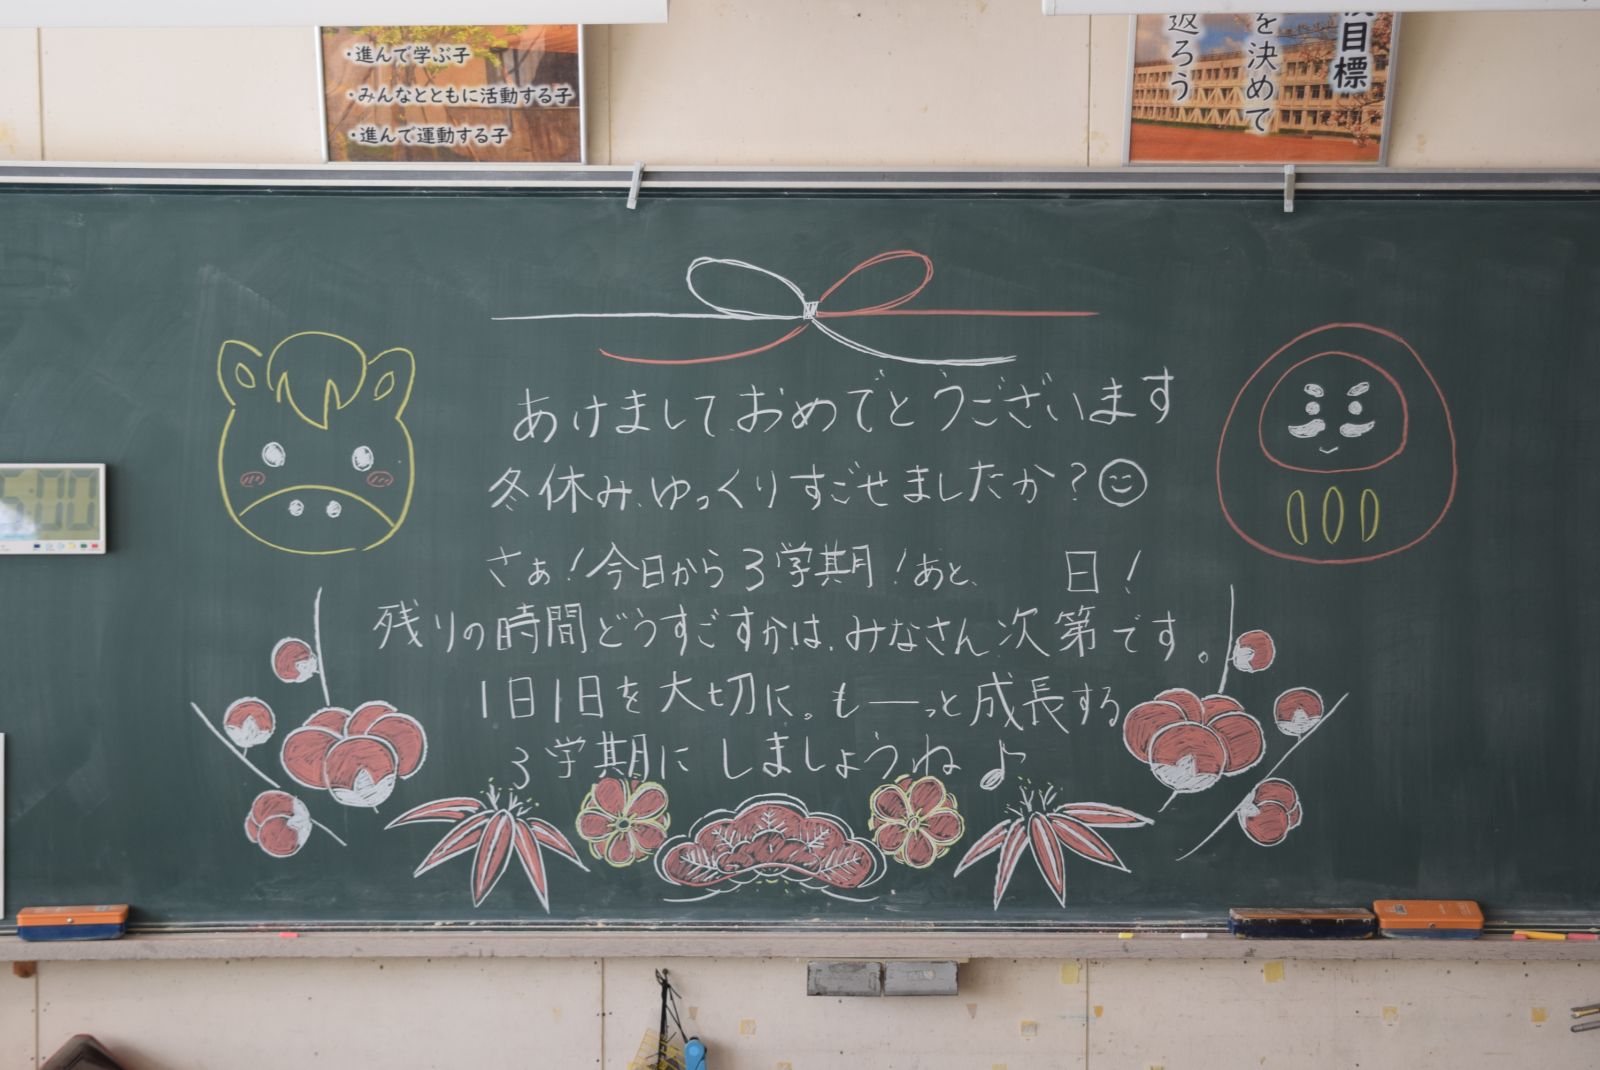 ・進んで学ぶ子
・みんなとともに活動する子
・進んで運動する子
目標
を決めて
返ろう
あけましておめでとうございます
冬休み、ゆっくりすごせましたか？
さぁ！今日から3学期！あと、　　日！
残りの時間どうすごすかは、みなさん次第です。
1日1日を大切に。も——っと成長する
3学期にしましょうね♪
:00